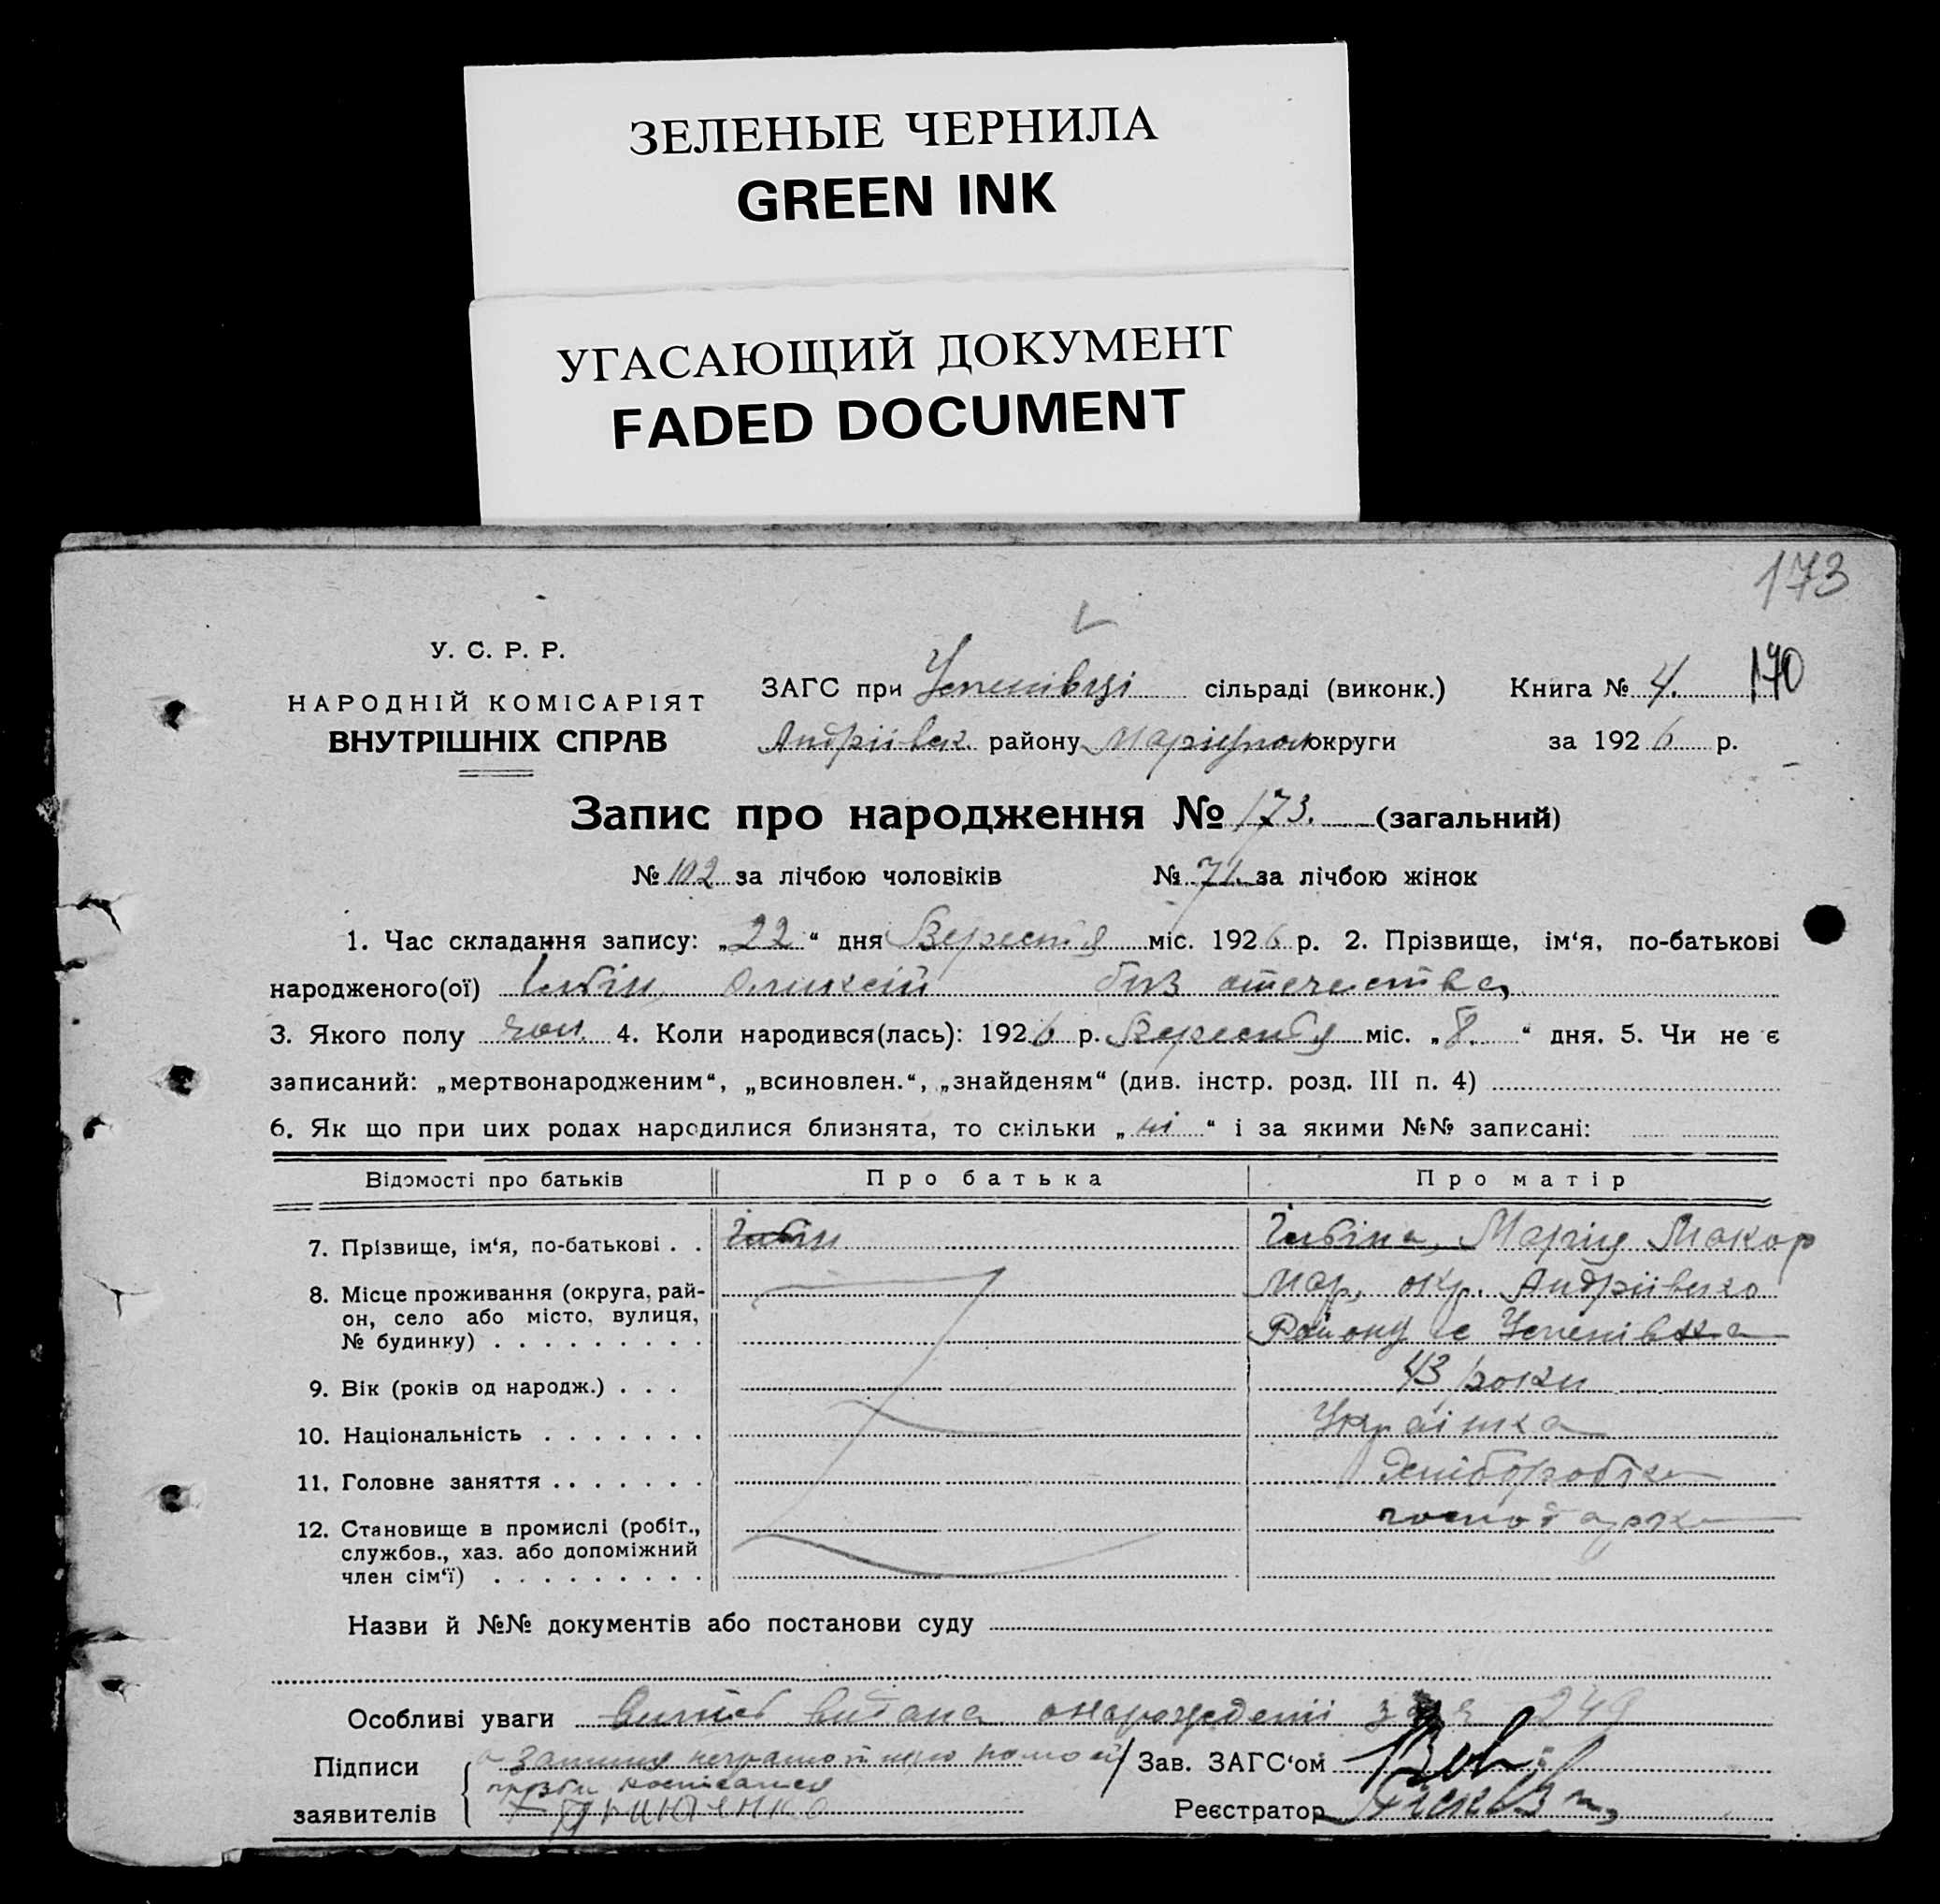 ЗЕЛЕНЫЕ ЧЕРНИЛА
GREEN INK
УГАСАЮЩИЙ ДОКУМЕНТ
FADED DOCUMENT
173
У. С. Р. Р.
НАРОДНІЙ КОМІСАРІЯТ
ВНУТРІШНІХ СПРАВ
ЗАГС при Успенівці сільраді (виконк.) Книга № 4. 170
Андріївск. району Маріупол округи за 1926 р.
Запис про народження № 173. (загальний)
№ 102 за лічбою чоловіків № 71. за лічбою жінок
1. Час складання запису: „22“ дня Вересня міс. 1926 р. 2. Прізвище, ім‘я, по-батькові
народженого(ої) без отечества
3. Якого полу чол. 4. Коли народився(лась): 1926 р. Вересня міс. „8.“ дня. 5. Чи не є
записаний: „мертвонародженим“, „всиновлен.“, „знайденям“ (див. інстр. розд. III п. 4)
6. Як що при цих родах народилися близнята, то скільки „ні“ і за якими №№ записані:
Відомості про батьків Про батька Про матір
7. Прізвище, ім‘я, по-батькові . . Марія Макар
8. Місце проживання (округа, рай- Мар. окр. Андріївско
он, село або місто, вулиця, Району с Успенівка
№ будинку) . . . . . . . . .
9. Вік (років од народж.) . . . 43 роки
10. Національність . . . . . . . Українка
11. Головне заняття . . . . . . . хліборобка
12. Становище в промислі (робіт., господарка
службов., хаз. або допоміжний
член сім‘ї) . . . . . . . . .
Назви й №№ документів або постанови суду
Особливі уваги видана 249
Підписи Зав. ЗАГС‘ом
заявителів Реєстратор